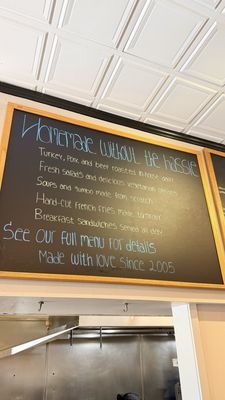 Homemade without the hassle
Turkey, Pork and beef roasted in house daily
Fresh salads and delicious vegetarian options
Soups and gumbo made from scratch
Hand-cut french fries made
Breakfast sandwiches served all day
See our full menu for details
Made with love since 2005